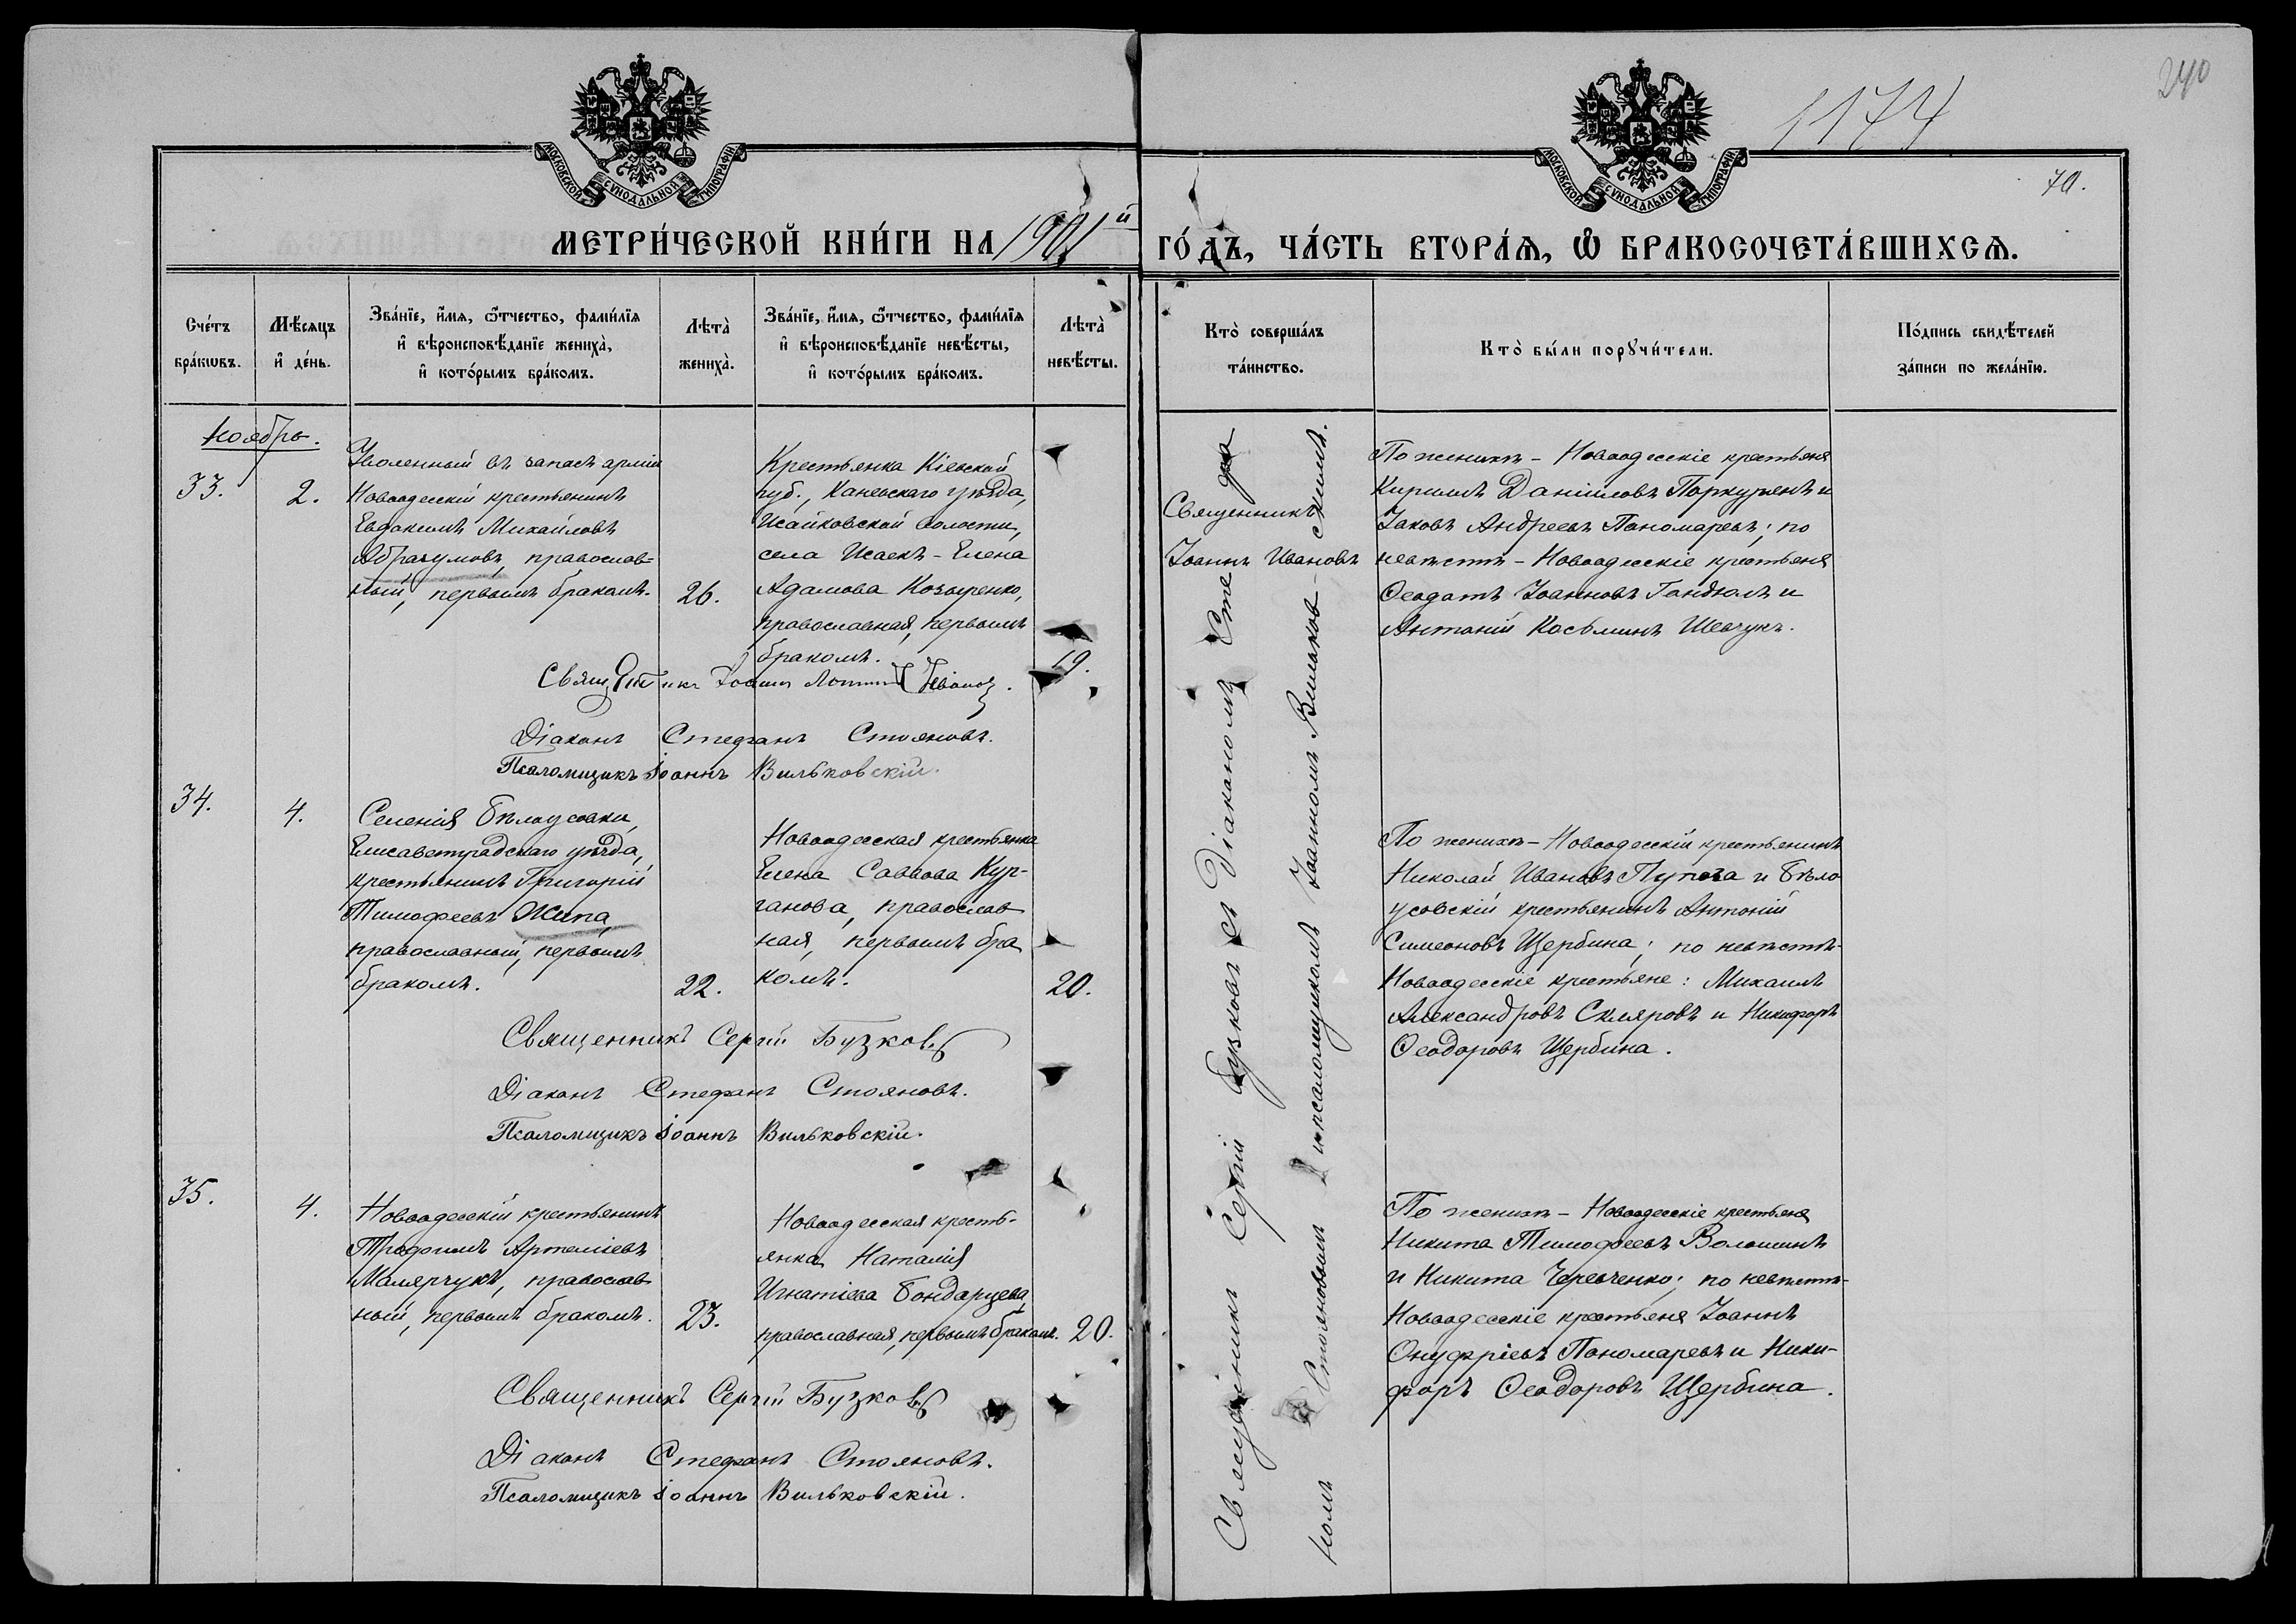 240
1174
70.
МОСКОВСКОЙ СѴНОДАЛЬНОЙ ТИПОГРАФІИ
МОСКОВСКОЙ СѴНОДАЛЬНОЙ ТИПОГРАФІИ
МЕТРИ́ЧЕСКОЙ КНИ́ГИ НА 1901й ГО́ДЪ, ЧА́СТЬ ВТОРА́Ѧ, Ѡ҆ БРАКОСОЧЕТА́ВШИХСѦ.
Сче́тъ бра́кѡвъ.
Мѣ́сяцъ и҆ де́нь.
Зва́нїе, и҆́мѧ, ѻ҆́тчество, фами́лїѧ
и҆ вѣроисповѣ́данїе жениха̀,
и҆ кото́рымъ бра́комъ.
Лѣта̀ жениха̀.
Зва́нїе, и҆́мѧ, ѻ҆́тчество, фами́лїѧ
и҆ вѣроисповѣ́данїе невѣ́сты,
и҆ кото́рымъ бра́комъ.
Лѣта̀ невѣ́сты.
Кто̀ соверша́лъ та́инство.
Кто̀ бы́ли порꙋчи́тели.
По́дпись свидѣ́телей за́писи по жела́нїю.
Ноябрь.
33.
2.
Уволенный въ запасъ арміи
Новоодесскій крестьянинъ
Евдокимъ Михайловъ
Абразумовъ, православ-
ный, первымъ бракомъ.
26.
Крестьянка Кіевской
губ., Каневскаго уѣзда,
Исайковской волости,
села Исаекъ - Елена
Адамова Козыренко,
православная, первымъ
бракомъ.
19.
Священникъ Іоаннъ Ивановъ
По женихѣ - Новоодесскіе крестьяне
Кириллъ Даніиловъ Поркуянъ и
Іаковъ Андреевъ Пономаревъ; по
невѣстѣ - Новоодесскіе крестьяне
Ѳеодотъ Іоанновъ Гандюлъ и
Антоній Косьминъ Шевчукъ.
Священникъ Іоаннъ Ивановъ.
Діаконъ Стефанъ Стояновъ.
Псаломщикъ Іоаннъ Вильковскій.
34.
4.
Селенія Бѣлоусовки,
Елисаветградскаго уѣзда,
крестьянинъ Григорій
Тимофеевъ Жипа,
православный, первымъ
бракомъ.
22.
Новоодесская крестьянка
Елена Саввова Кур-
ганова, православ-
ная, первымъ бра
комъ.
20.
По женихѣ - Новоодесскій крестьянинъ
Николай Ивановъ и Бѣло
усовскій крестьянинъ Антоній
Симеоновъ Щербина; по невѣстѣ-
Новоодесскіе крестьяне: Михаилъ
Александровъ Скляровъ и Никифоръ
Ѳеодоровъ Щербина.
Священникъ Сергій Бузковъ
Діаконъ Стефанъ Стояновъ.
Псаломщикъ Іоаннъ Вильковскій.
35.
4.
Новоодесскій крестьянинъ
Трофимъ Артеміевъ
Малярчукъ, православ
ный, первымъ бракомъ.
23.
Новоодесская кресть-
янка Наталія
Игнатіева Бондарцева,
православная, первымъ бракомъ.
20.
По женихѣ - Новоодесскіе крестьяне
Никита Тимофеевъ Волошинъ
и Никита Черевченко; по невѣстѣ-
Новоодесскіе крестьяне Іоаннъ
Онуфріевъ Пономаревъ и Ники-
форъ Ѳеодоровъ Щербина.
Священникъ Сергій Бузковъ
Діаконъ Стефанъ Стояновъ.
Псаломщикъ Іоаннъ Вильковскій.
Священникъ Сергій Бузковъ съ Діакономъ Сте фа
номъ Стояновымъ и псаломщикомъ Іоанномъ Вильков-скимъ.